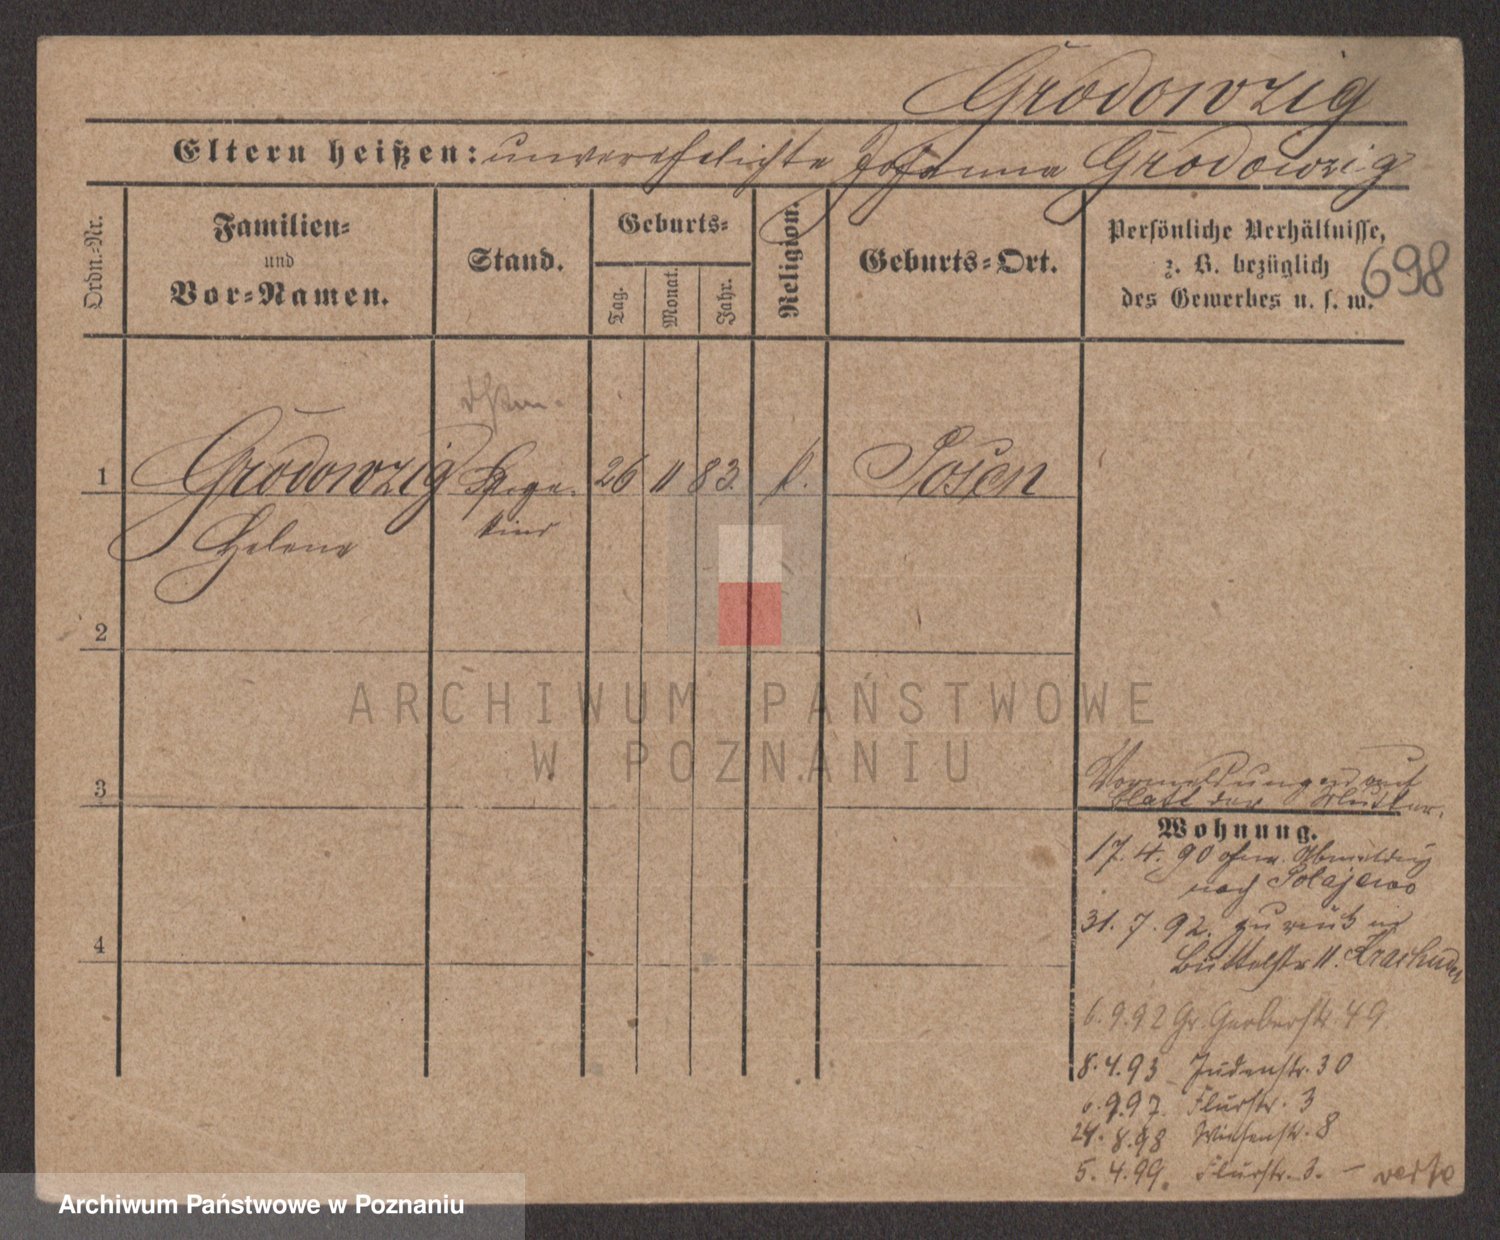 Grodowzig
Eltern heißen: unverehelichte Johanna Grodowzig
Ordn.-Nr.
Familien-
und
Vor-Namen.
Stand.
Geburts-
Tag.
Monat.
Jahr.
Religion.
Geburts-Ort.
Persönliche Verhältnisse,
z. B. bezüglich
des Gewerbes u. s. w.
698
1
Grodowzig
Pflege-
26 11 83. k. Posen
Helene
kind
2
3
4
ARCHIWUM PAŃSTWOWE
W POZNANIU
Vormeldungen auf
Blatt der Mutter.
Wohnung.
17. 4. 90 ohne Abmeldung
nach Polajewo
31. 7. 92. zurück in
Büttelstr 11.
6. 9. 92 Gr. Gerberstr. 49
8. 4. 93 Judenstr. 30
9.97. Flurstr. 3
24. 8. 98 Wiesenstr. 8
5. 4. 99. Flurstr. 3. — verte
Archiwum Państwowe w Poznaniu